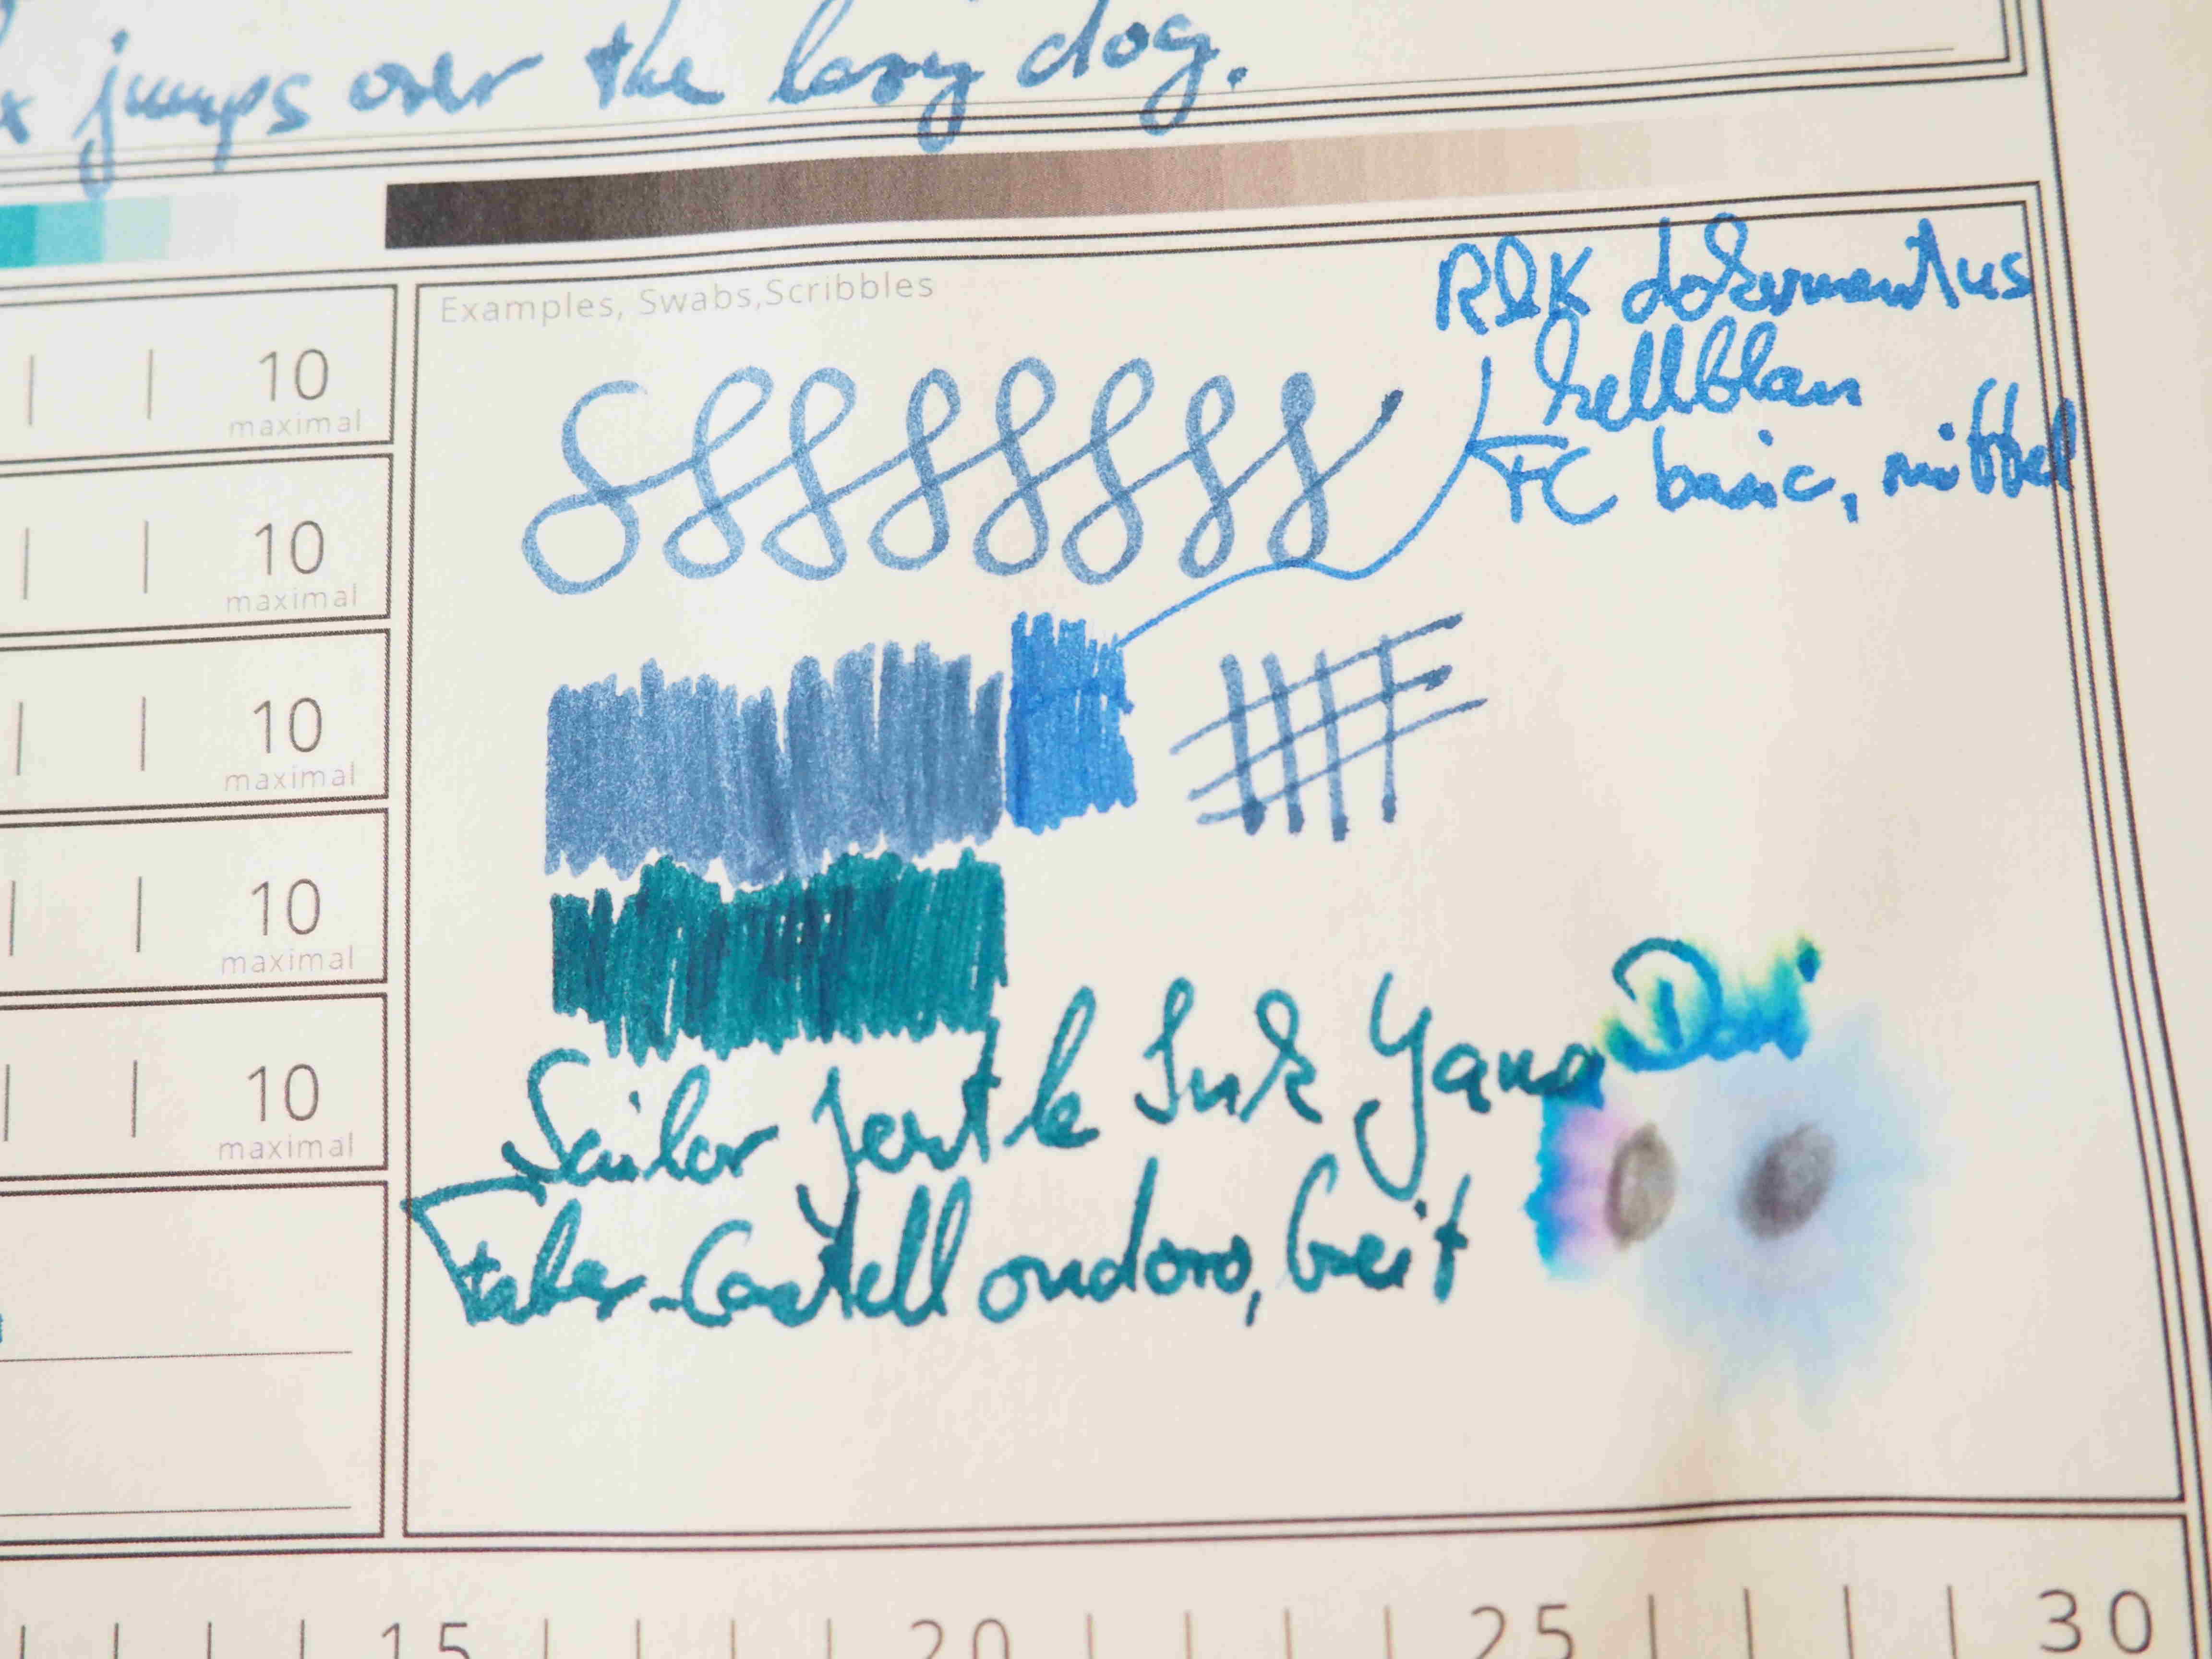 x jumps over the lazy dog.
Examples, Swabs,Scribbles
R&K dokumentus
hellblau
FC basic, mittel
10
maximal
10
maximal
10
maximal
10
maximal
10
maximal
Sailor Jentle Ink Yama Dori
Faber-Castell ondoro, breit
15 20 25 30